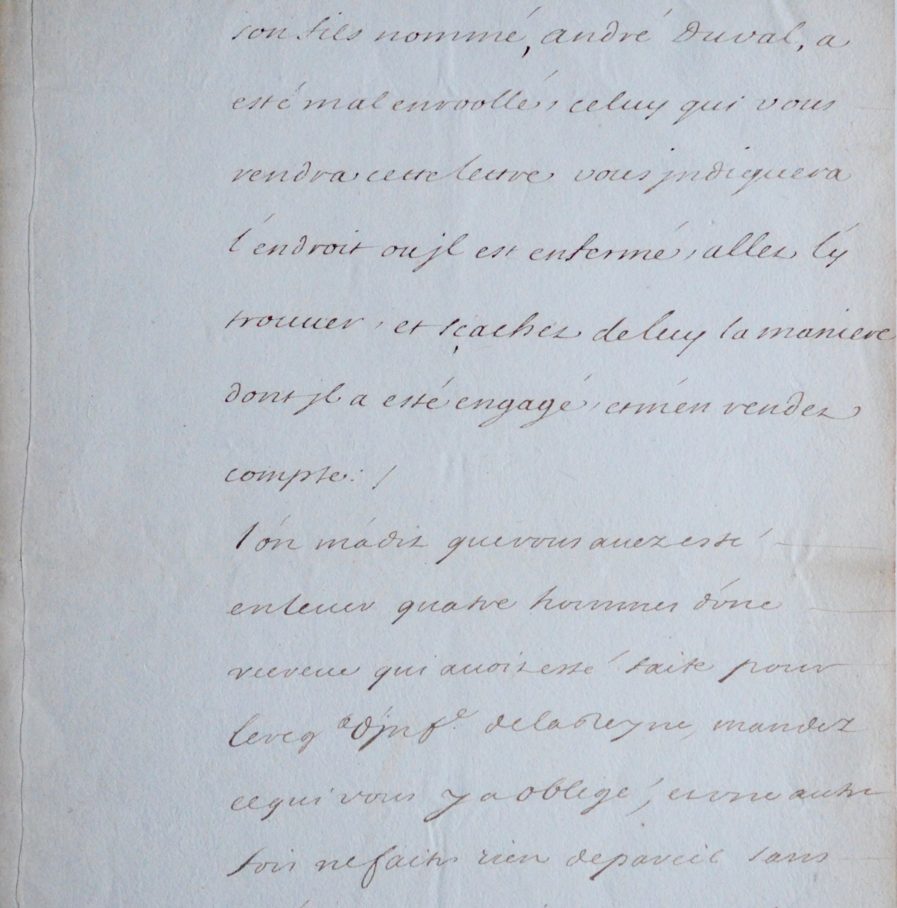 son fils nommé, andré duval, a
esté mal enroollé, celuy qui vous
rendra cette lettre vous jndiquera
l'endroit ou jl est enfermé, allez l'y
trouuer, et sçachez de luy la maniere
dont jl a esté engagé, et m'en rendez
compte. /
l'on m'a dit que vous auez esté
enleuer quatre hommes d'vne
recreue qui auoit esté faite pour
le reg.t d'jnf.e de la Reyne, mandez
ce qui vous y a obligé, et vne autre
fois ne faites rien de pareil sans